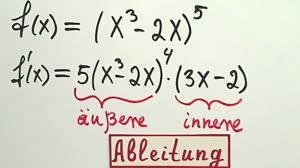 f(x) = (x³ - 2x)⁵
f'(x) = 5(x³ - 2x)⁴ · (3x - 2)
äußere innere
Ableitung